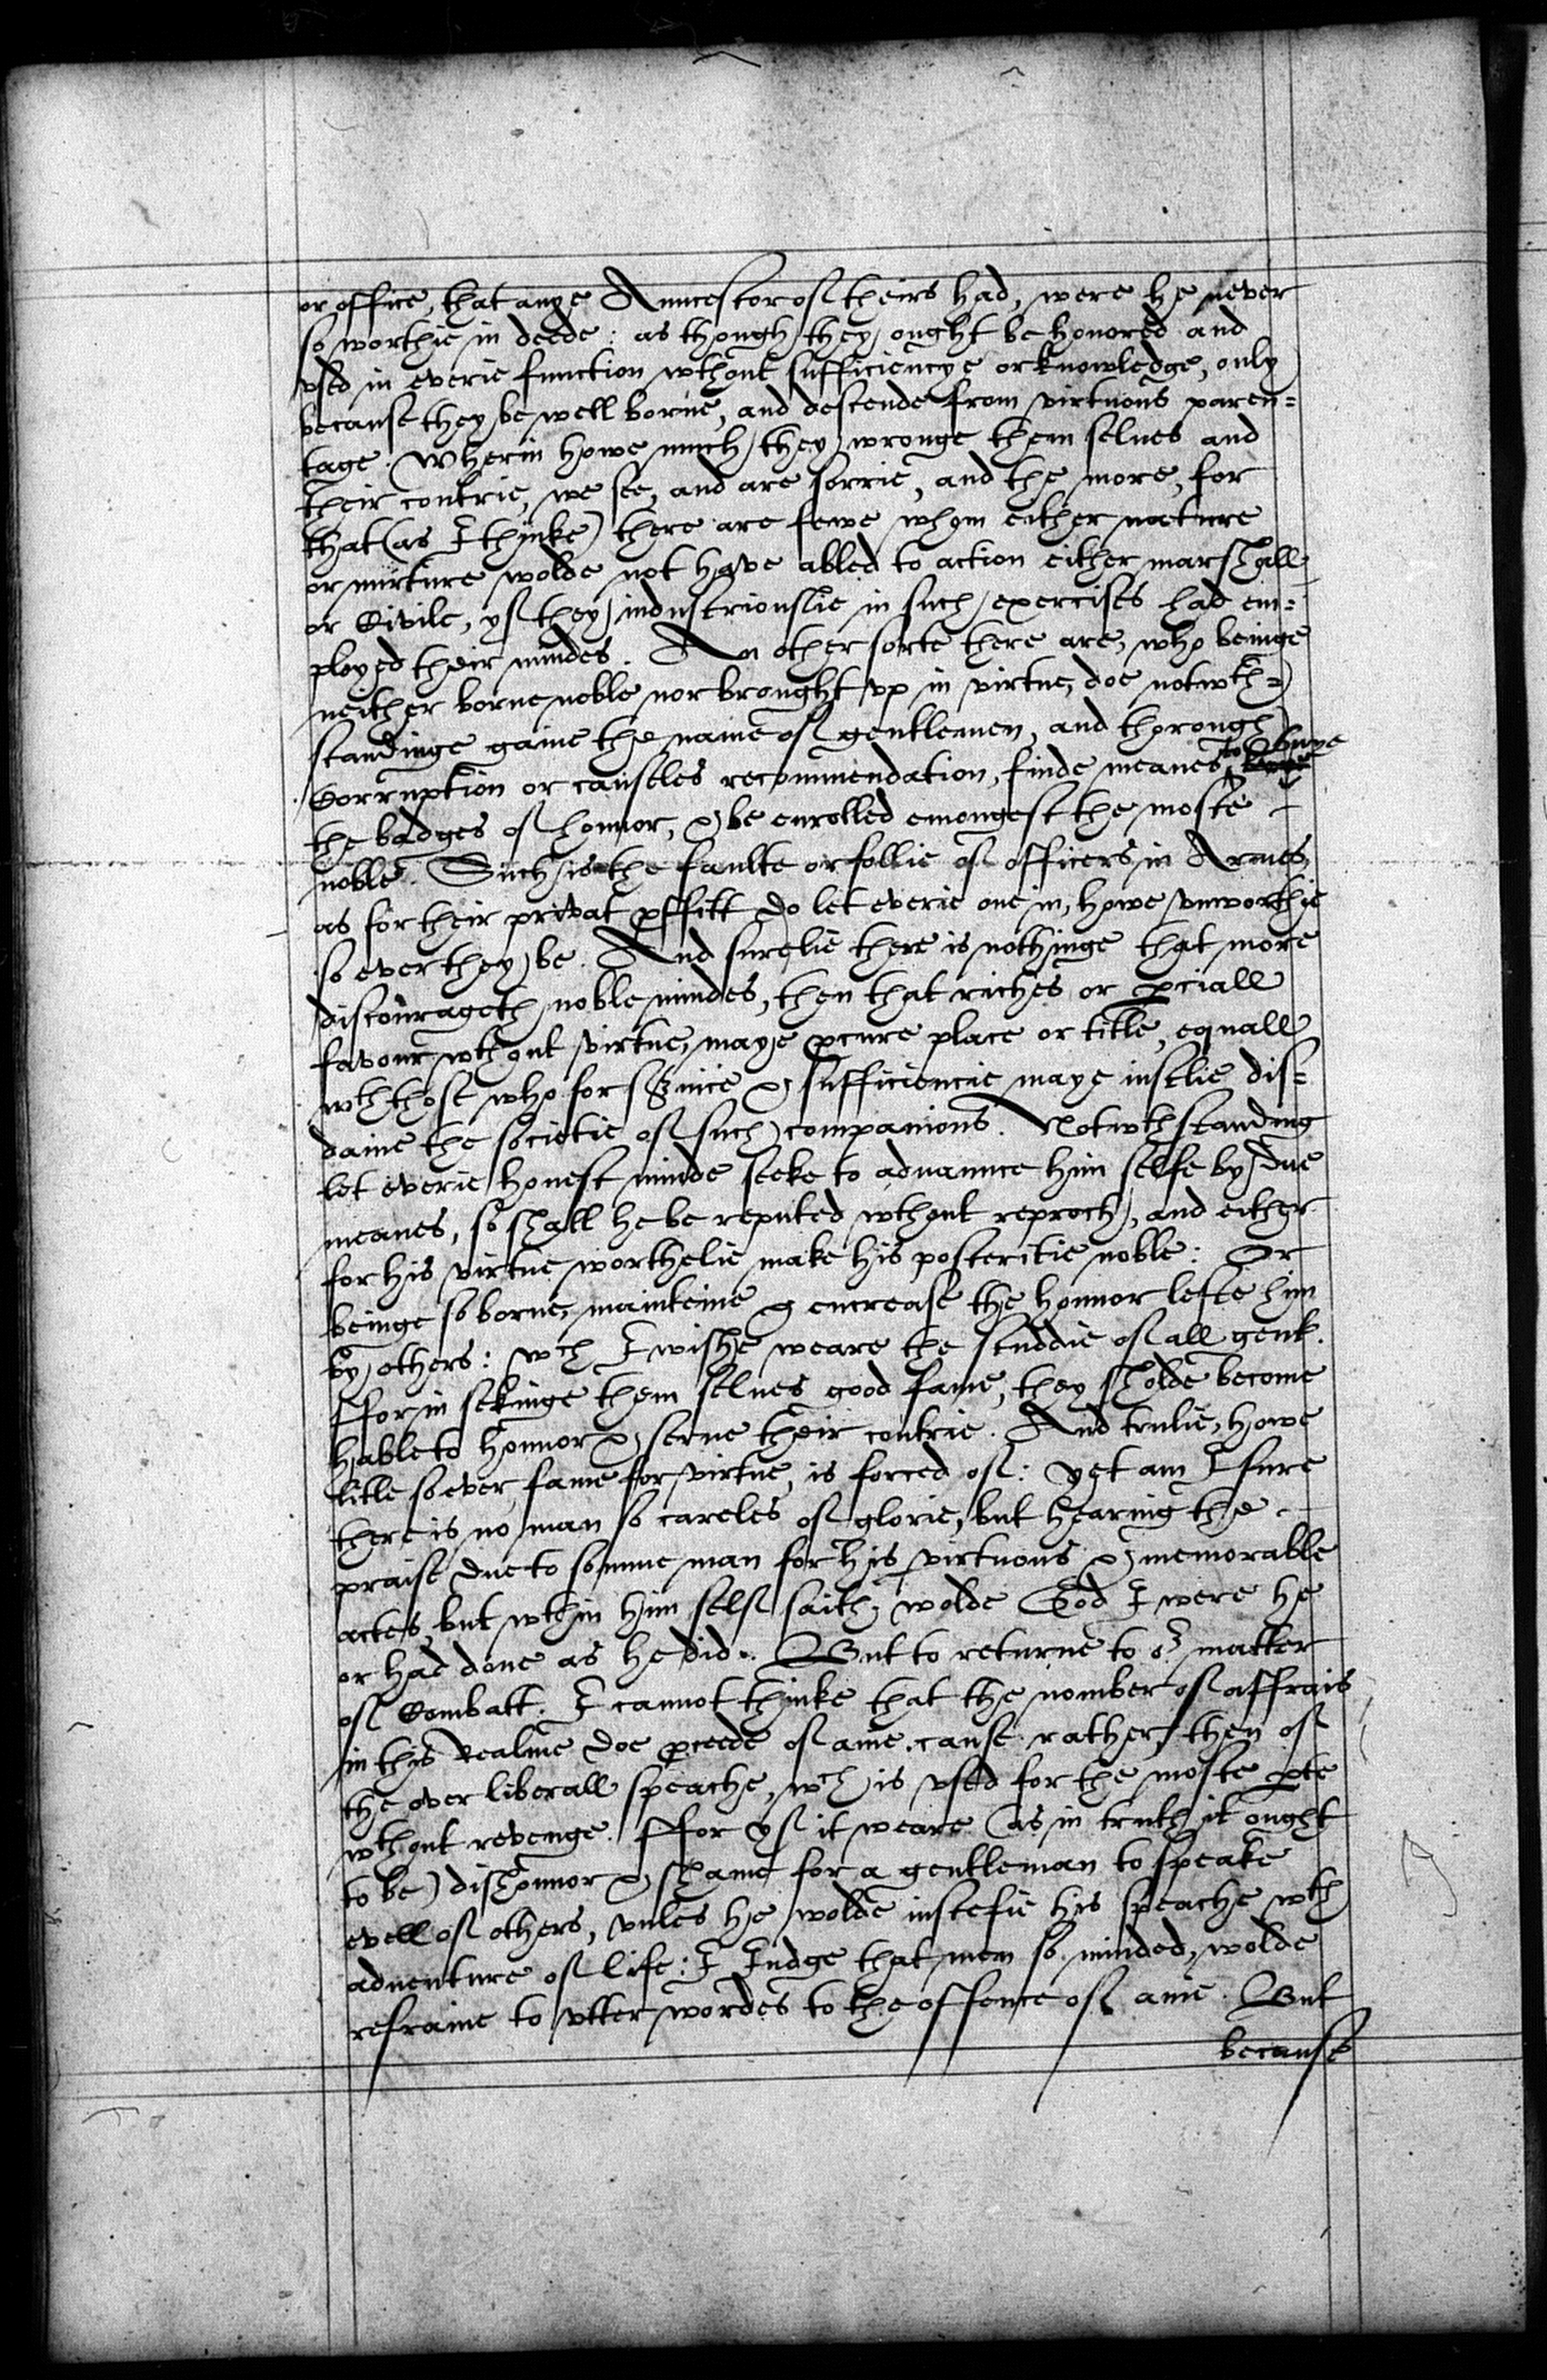 or office, that anye Anncestor of theirs had, were he never
so worthie in deede: as though they ought be honored and
vsed in everie function wthout sufficiencye or knowledge, only
because they be well borne, and descende from virtuous paren=
tage. Wherin howe much they wronge them selues and
their contrie, we see, and are sorrie, and the more, for
that (as I thinke) there are fewe whom either nature
or nurture wolde not have abled to action either marshall
or Civile, yf they industriouslie in such exercises had em=
ployed their mindes. An other sorte there are, who beinge
neither borne noble nor brought vp in virtue, doe notwth=
standinge gaine the name of gentlemen, and thorough
Corruption or causeles recommendation, finde meanes to buye
the badges of honnor, & be enrolled emongest the moste
noble. Such is the faulte or follie of officers in Armes,
as for their privat pffitt do let everie one in, howe vnworthie
so ever they be. And surelie there is nothinge that more
discourageth noble mindes, then that riches or pciall
favour wthout virtue, maye pcure place or title, equall
wth those who for service & sufficiencie maye iustlie dis=
daine the societie of such companions. Notwthstanding
let everie honest minde seeke to aduannce him selfe by due
meanes, so shall he be reputed wthout reproch, and either
for his virtue worthelie make his posteritie noble: Or
beinge so borne, mainteine & encrease the honnor lefte him
by others: wch I wishe weare the studdie of all gent.
ffor in sekinge them selues good fame, they sholde become
hable to honnor & serue their contrie. And trulie, howe
litle so ever fame for virtue, is forced of: yet am I sure
there is no man so careles of glorie, but hearing the
praise due to somme man for his virtuous & memorable
actes, but wthin him self saith, wolde God I were he
or had done as he did. But to returne to or matter
of Combatt. I cannot thinke that the nomber of affrais
in this Realme doe pceede of anie cause rather then of
the over liberall speache, wch is vsed for the moste pte
wthout revenge. ffor yf it weare (as in truth it ought
to be) dishonnor & shame for a gentleman to speake
evell of others, vnles he wolde iustefie his speache wth
aduenture of life: I Iudge that men so minded, wolde
refraine to vtter wordes to the offence of anie. But
because